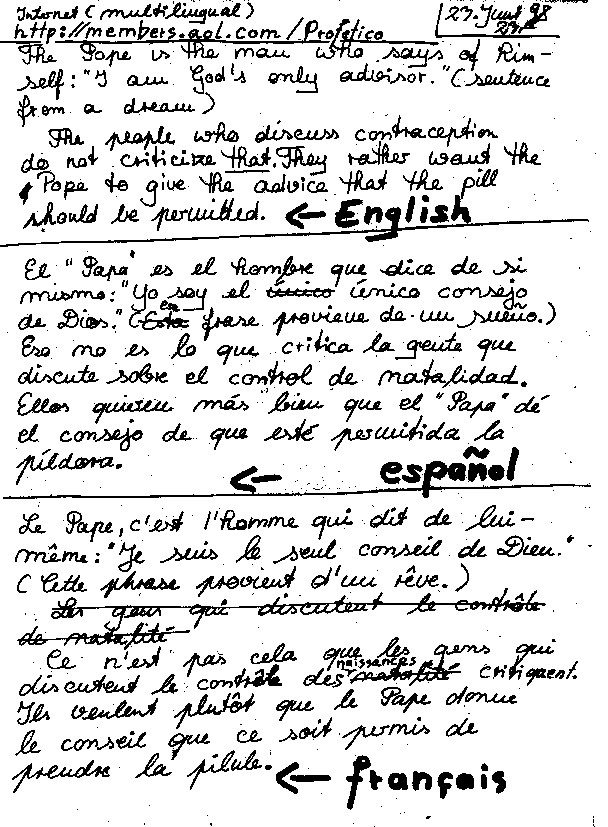 Internet (multilingual)
23. Juni 98
http://members.aol.com/Profetico
The Pape is the man who says of Him-
self: "I am God's only advisor." (sentence
from a dream)
The people who discuss contraception
do not criticize that. They rather want the
Pope to give the advice that the pill
should be permitted. ← English
El "Papa" es el hombre que dice de si
mismo: "Yo soy el único único consejo
de Dios." (Esta frase proviene de un sueño.)
Eso no es lo que critica la gente que
discute sobre el control de natalidad.
Ellos quieren más bien que el "Papa" dé
el consejo de que esté permitida la
píldora.
← español
Le Pape, c'est l'homme qui dit de lui-
même: "Je suis le seul conseil de Dieu."
(Cette phrase provient d'un rêve.)
Les gens qui discutent le contrôle
de natalité
Ce n'est pas cela que les gens qui
naissances
discutent le contrôle des natalité critiquent.
Ils veulent plutôt que le Pape donne
le conseil que ce soit permis de
prendre la pilule. ← français